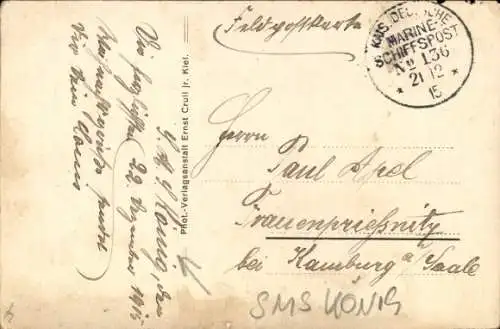 Feldpostkarte
KAIS. DEUTSCHE
MARINE-
SCHIFFSPOST
No 136
21 12
* 15 *
Herrn
Paul Apel
Frauenprießnitz
bei Kamburg a/Saale
SMS KÖNIG
Phot.-Verlagsanstalt Ernst Crull jr. Kiel.
S. M. S. König, den
22. Dezember 1915
Die herzlichsten
Weihnachtsgrüße sendet